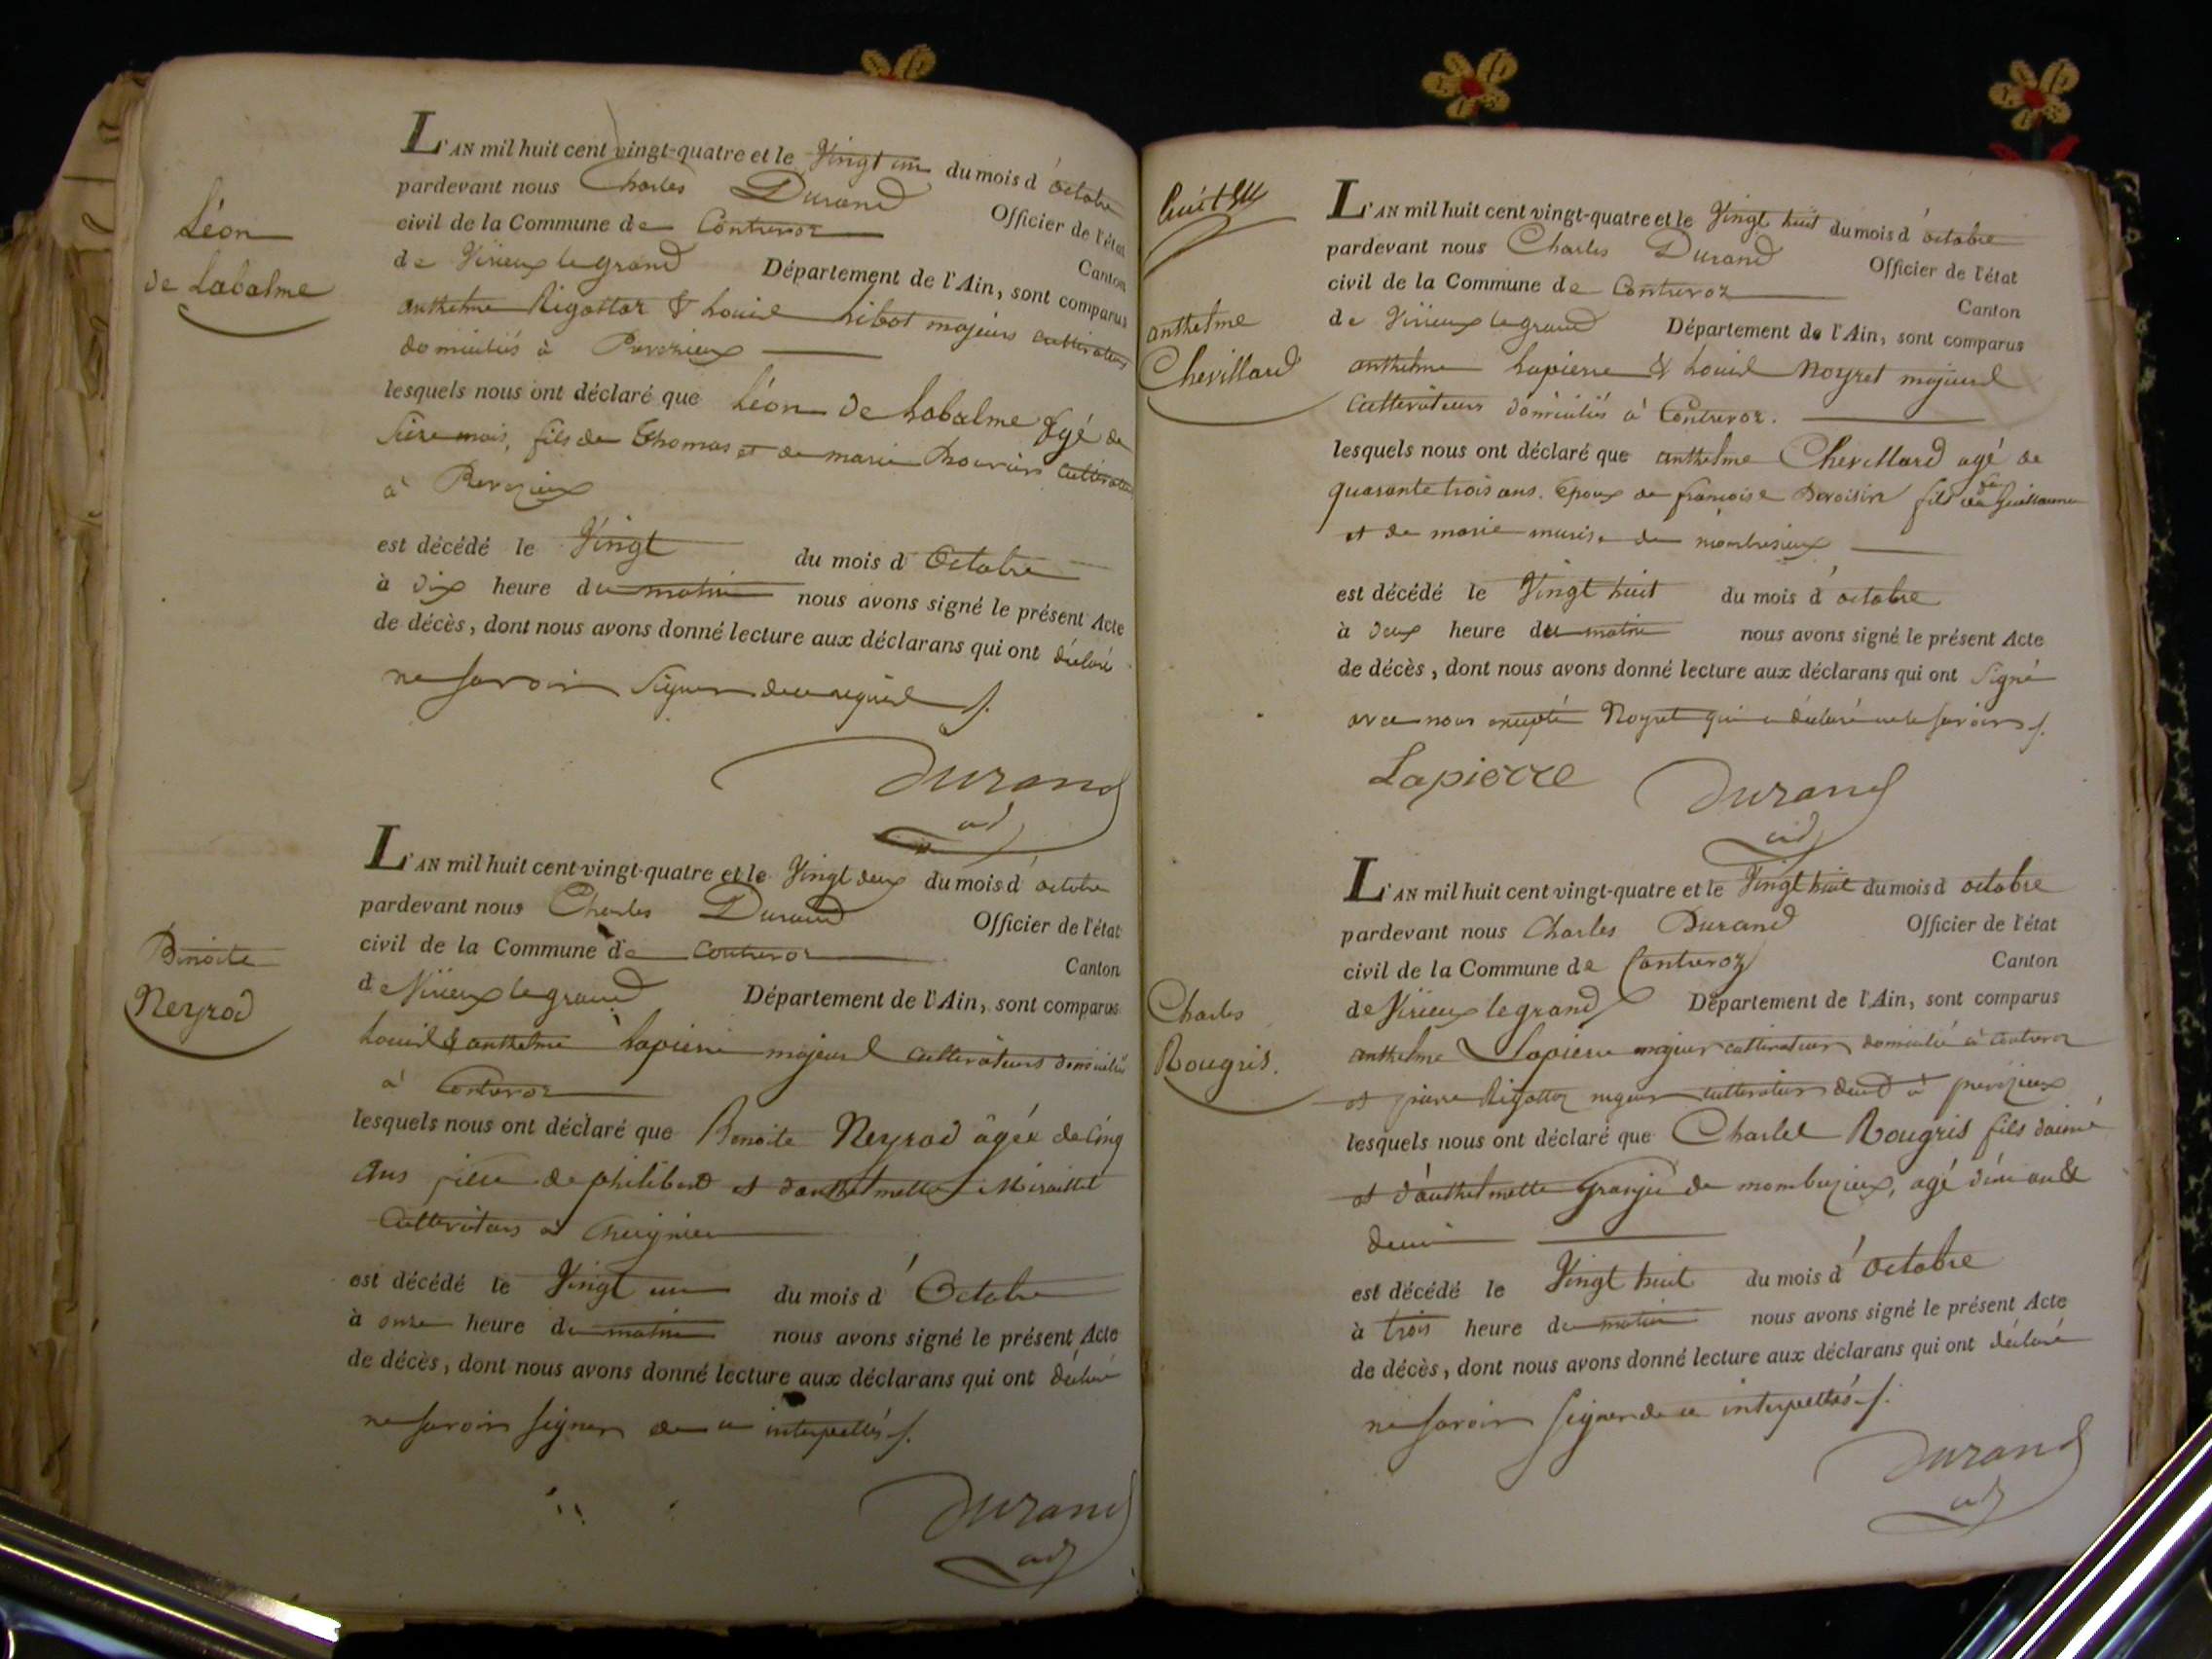 Léon
de Labalme
L'AN mil huit cent vingt-quatre et le Vingt un du mois d'octobre
pardevant nous Charles Durand Officier de l'état
civil de la Commune de Contrevoz Canton
de Virieux le grand Département de l'Ain, sont comparus
anthelme Rigottaz & Louis majeurs cultivateurs
domiciliés à
lesquels nous ont déclaré que Léon de Labalme âgé de
mois, fils de Thomas et de marie cultivateurs
à
est décédé le Vingt du mois d'Octobre
à dix heure du matin nous avons signé le présent Acte
de décès, dont nous avons donné lecture aux déclarans qui ont déclaré
ne savoir signer de ce requis
Durand
adj
Benoite
Neyrod
L'AN mil huit cent vingt-quatre et le Vingt deux du mois d'octobre
pardevant nous Charles Durand Officier de l'état
civil de la Commune de Contrevoz Canton
de Virieux le grand Département de l'Ain, sont comparus
Louis & anthelme Lapierre majeurs cultivateurs domiciliés
à Contrevoz
lesquels nous ont déclaré que Benoite Neyrod âgée de Cinq
ans fille de philibert et d'anthelmette
Cultivateurs à
est décédé le Vingt un du mois d'Octobre
à onze heure du matin nous avons signé le présent Acte
de décès, dont nous avons donné lecture aux déclarans qui ont déclaré
ne savoir signer de ce interpellés
Durand
adj
anthelme
Chevillard
L'AN mil huit cent vingt-quatre et le Vingt huit du mois d'octobre
pardevant nous Charles Durand Officier de l'état
civil de la Commune de Contrevoz Canton
de Virieux le grand Département de l'Ain, sont comparus
anthelme Lapierre & Louis Noyret majeurs
cultivateurs domiciliés à Contrevoz.
lesquels nous ont déclaré que anthelme Chevillard agé de
quarante trois ans. Epoux de françoise fils de feu Guillaume
et de marie de
est décédé le Vingt huit du mois d'octobre
à deux heure du matin nous avons signé le présent Acte
de décès, dont nous avons donné lecture aux déclarans qui ont Signé
avec nous excepté Noyret qui a déclaré ne le savoir
Lapierre Durand
adj
Charles
Rougris.
L'AN mil huit cent vingt-quatre et le Vingt huit du mois d octobre
pardevant nous Charles Durand Officier de l'état
civil de la Commune de Contrevoz Canton
de Virieux le grand Département de l'Ain, sont comparus
anthelme Lapierre majeur cultivateur domicilié à Contrevoz
et pierre Rigottaz majeur cultivateur à
lesquels nous ont déclaré que Charles Rougris fils d'aimé
et d'anthelmette de agé d'un an &
demi
est décédé le Vingt huit du mois d'octobre
à trois heure du matin nous avons signé le présent Acte
de décès, dont nous avons donné lecture aux déclarans qui ont déclaré
ne savoir signer de ce interpellés
Durand
adj